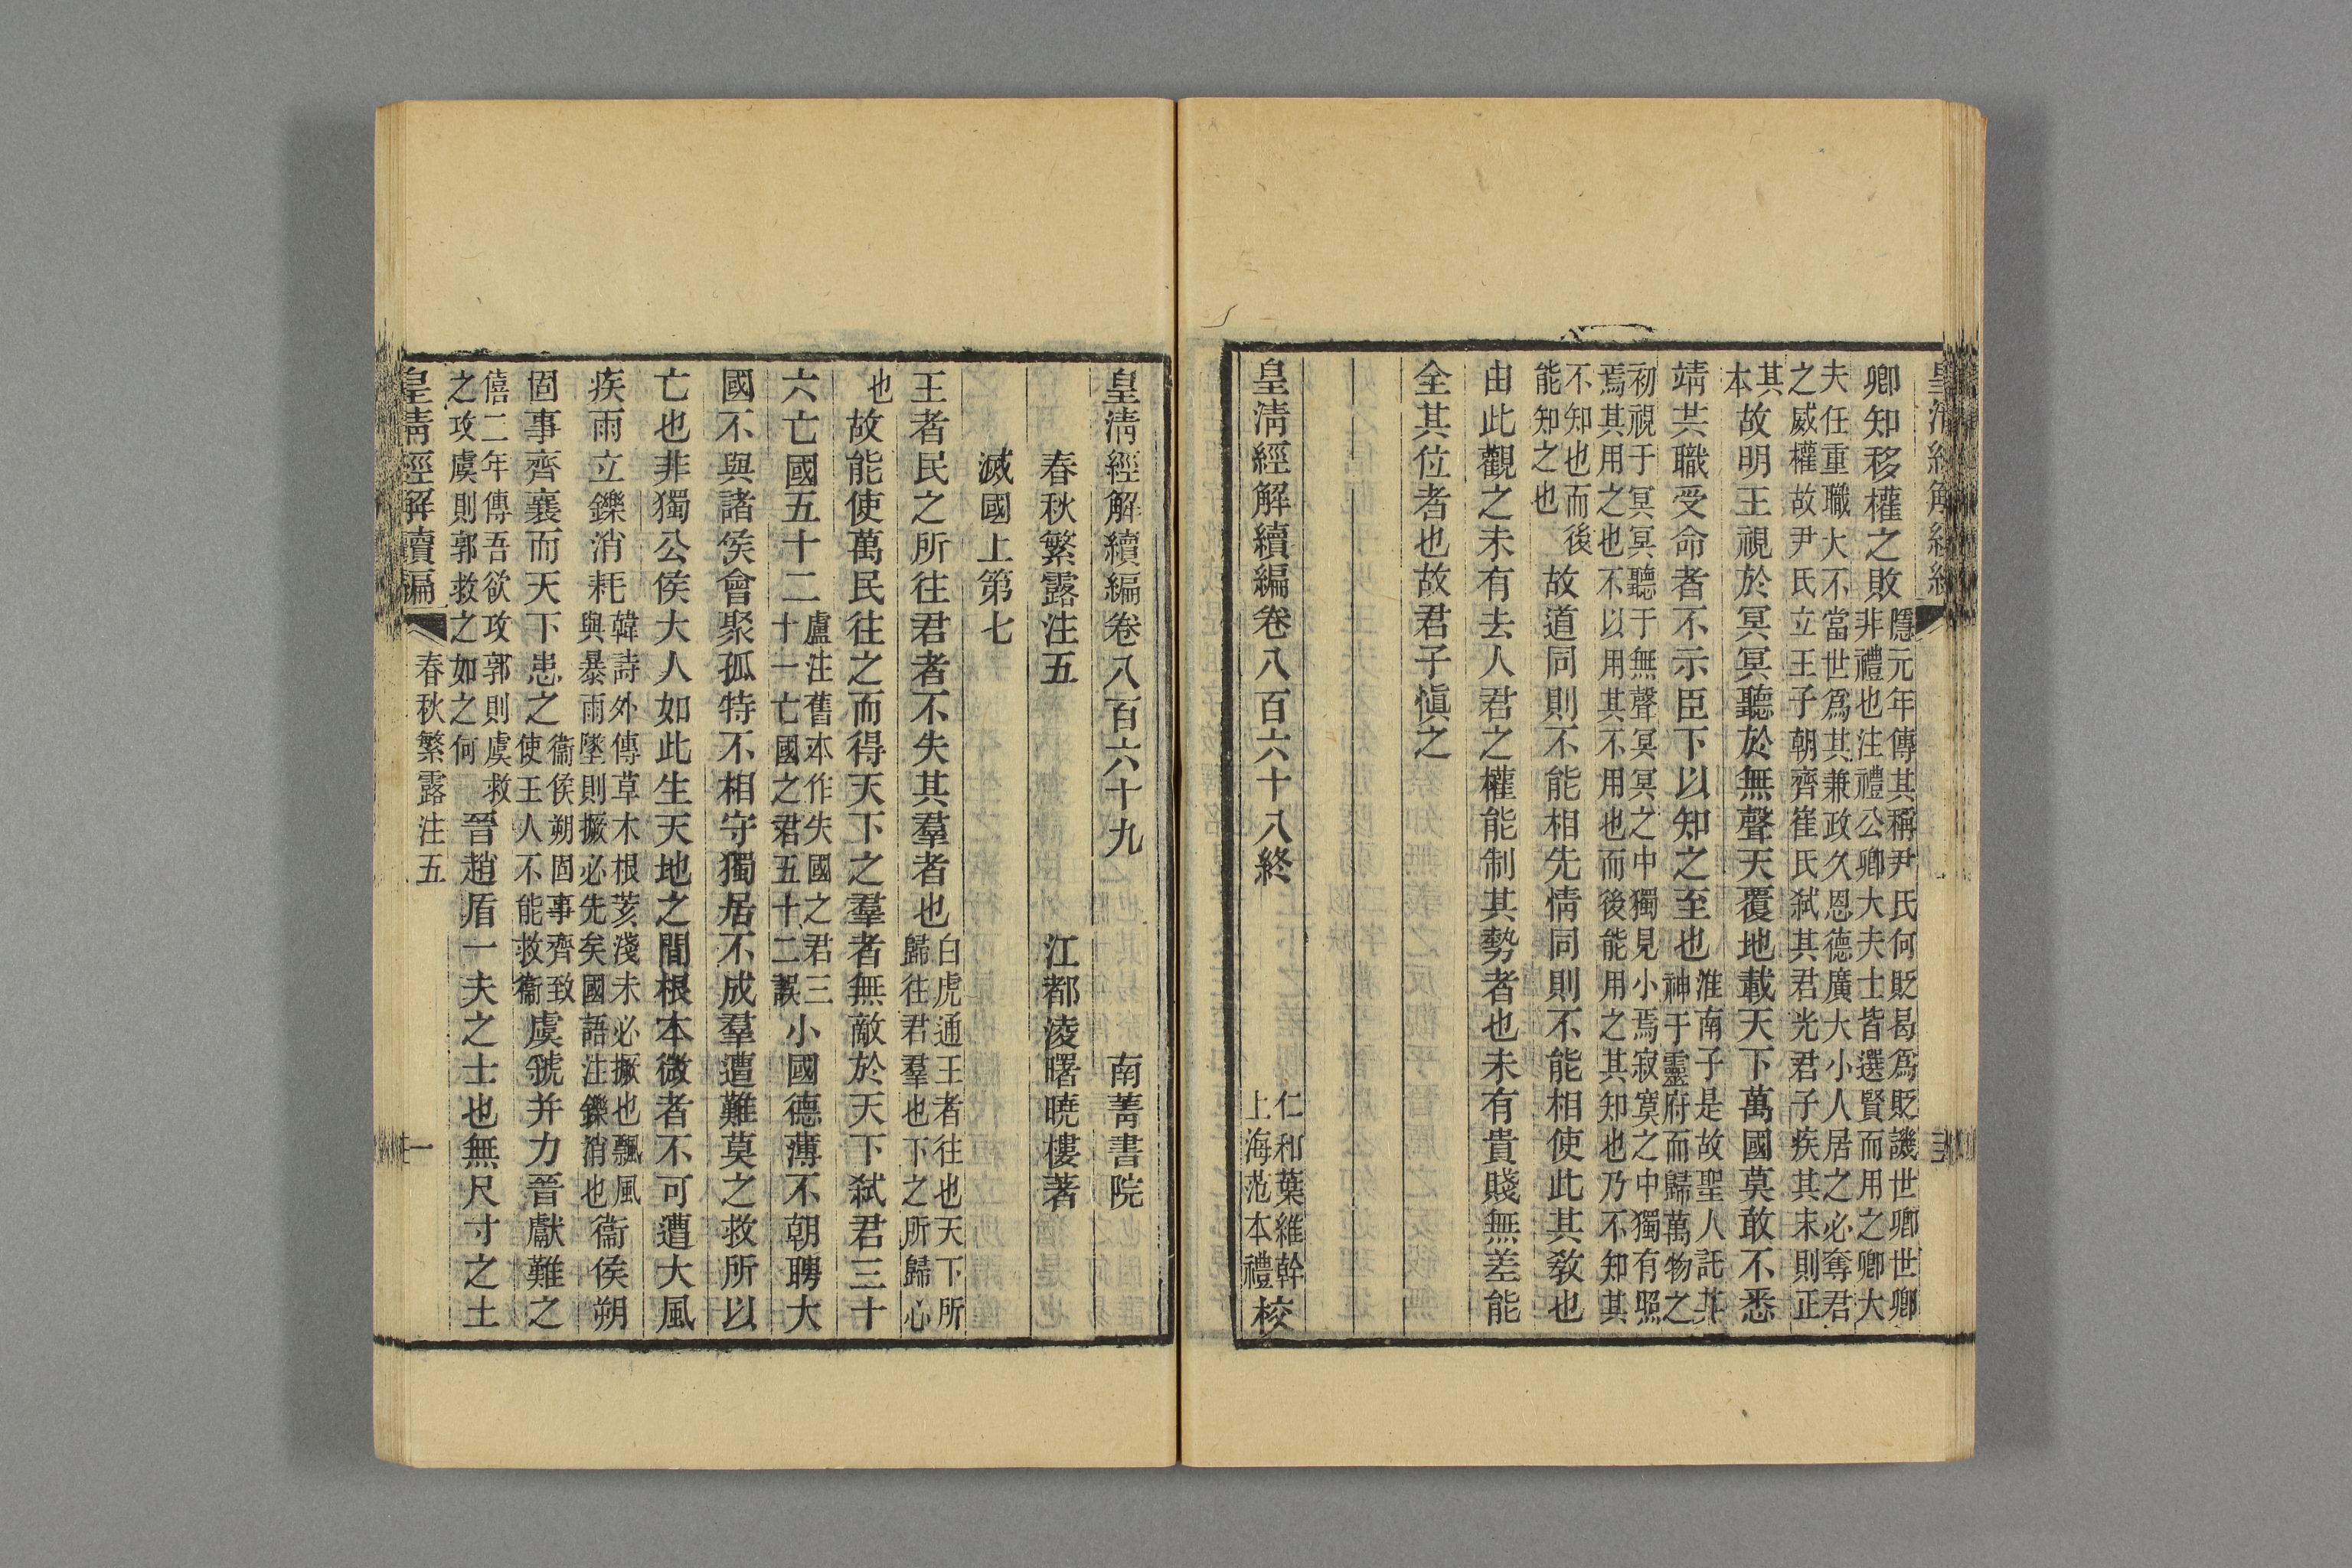 卿知移權之敗隱元年傳其稱尹氏何貶曷爲貶譏世卿世卿非禮也注禮公卿大夫士皆選賢而用之卿大
夫任重職大不當世爲其兼政久恩德廣大小人居之必奪君之威權故尹氏立王子朝齊崔氏弒其君光君子疾其末則正
其本故明王視於冥冥聽於無聲天覆地載天下萬國莫敢不悉
靖共職受命者不示臣下以知之至也淮南子是故聖人託其神于靈府而歸萬物之
初視于冥冥聽于無聲冥冥之中獨見小焉寂寞之中獨有照焉其用之也不以用其不用也而後能用之其知也乃不知其
不知也而後能知之也故道同則不能相先情同則不能相使此其敎也
由此觀之未有去人君之權能制其勢者也未有貴賤無差能
全其位者也故君子愼之
皇淸經解續編卷八百六十八終
仁和葉維幹
上海范本禮校
皇淸經解續編卷八百六十九
南菁書院
春秋繁露注五
江都淩曙曉樓著
滅國上第七
王者民之所往君者不失其羣者也白虎通王者往也天下所歸往君羣也下之所歸心
也故能使萬民往之而得天下之羣者無敵於天下弒君三十
六亡國五十二盧注舊本作失國之君三十一亡國之君五十二誤小國德薄不朝聘大
國不與諸侯會聚孤特不相守獨居不成羣遭難莫之救所以
亡也非獨公侯大人如此生天地之間根本微者不可遭大風
疾雨立鑠消耗韓詩外傳草木根荄淺未必撅也飄風與暴雨墜則撅必先矣國語注鑠消也衞侯朔
固事齊襄而天下患之衞侯朔固事齊致使王人不能救衞虞虢并力晉獻難之
僖二年傳吾欲攻郭則虞救之攻虞則郭救之如之何晉趙盾一夫之士也無尺寸之土
皇淸經解續編
春秋繁露注五
一